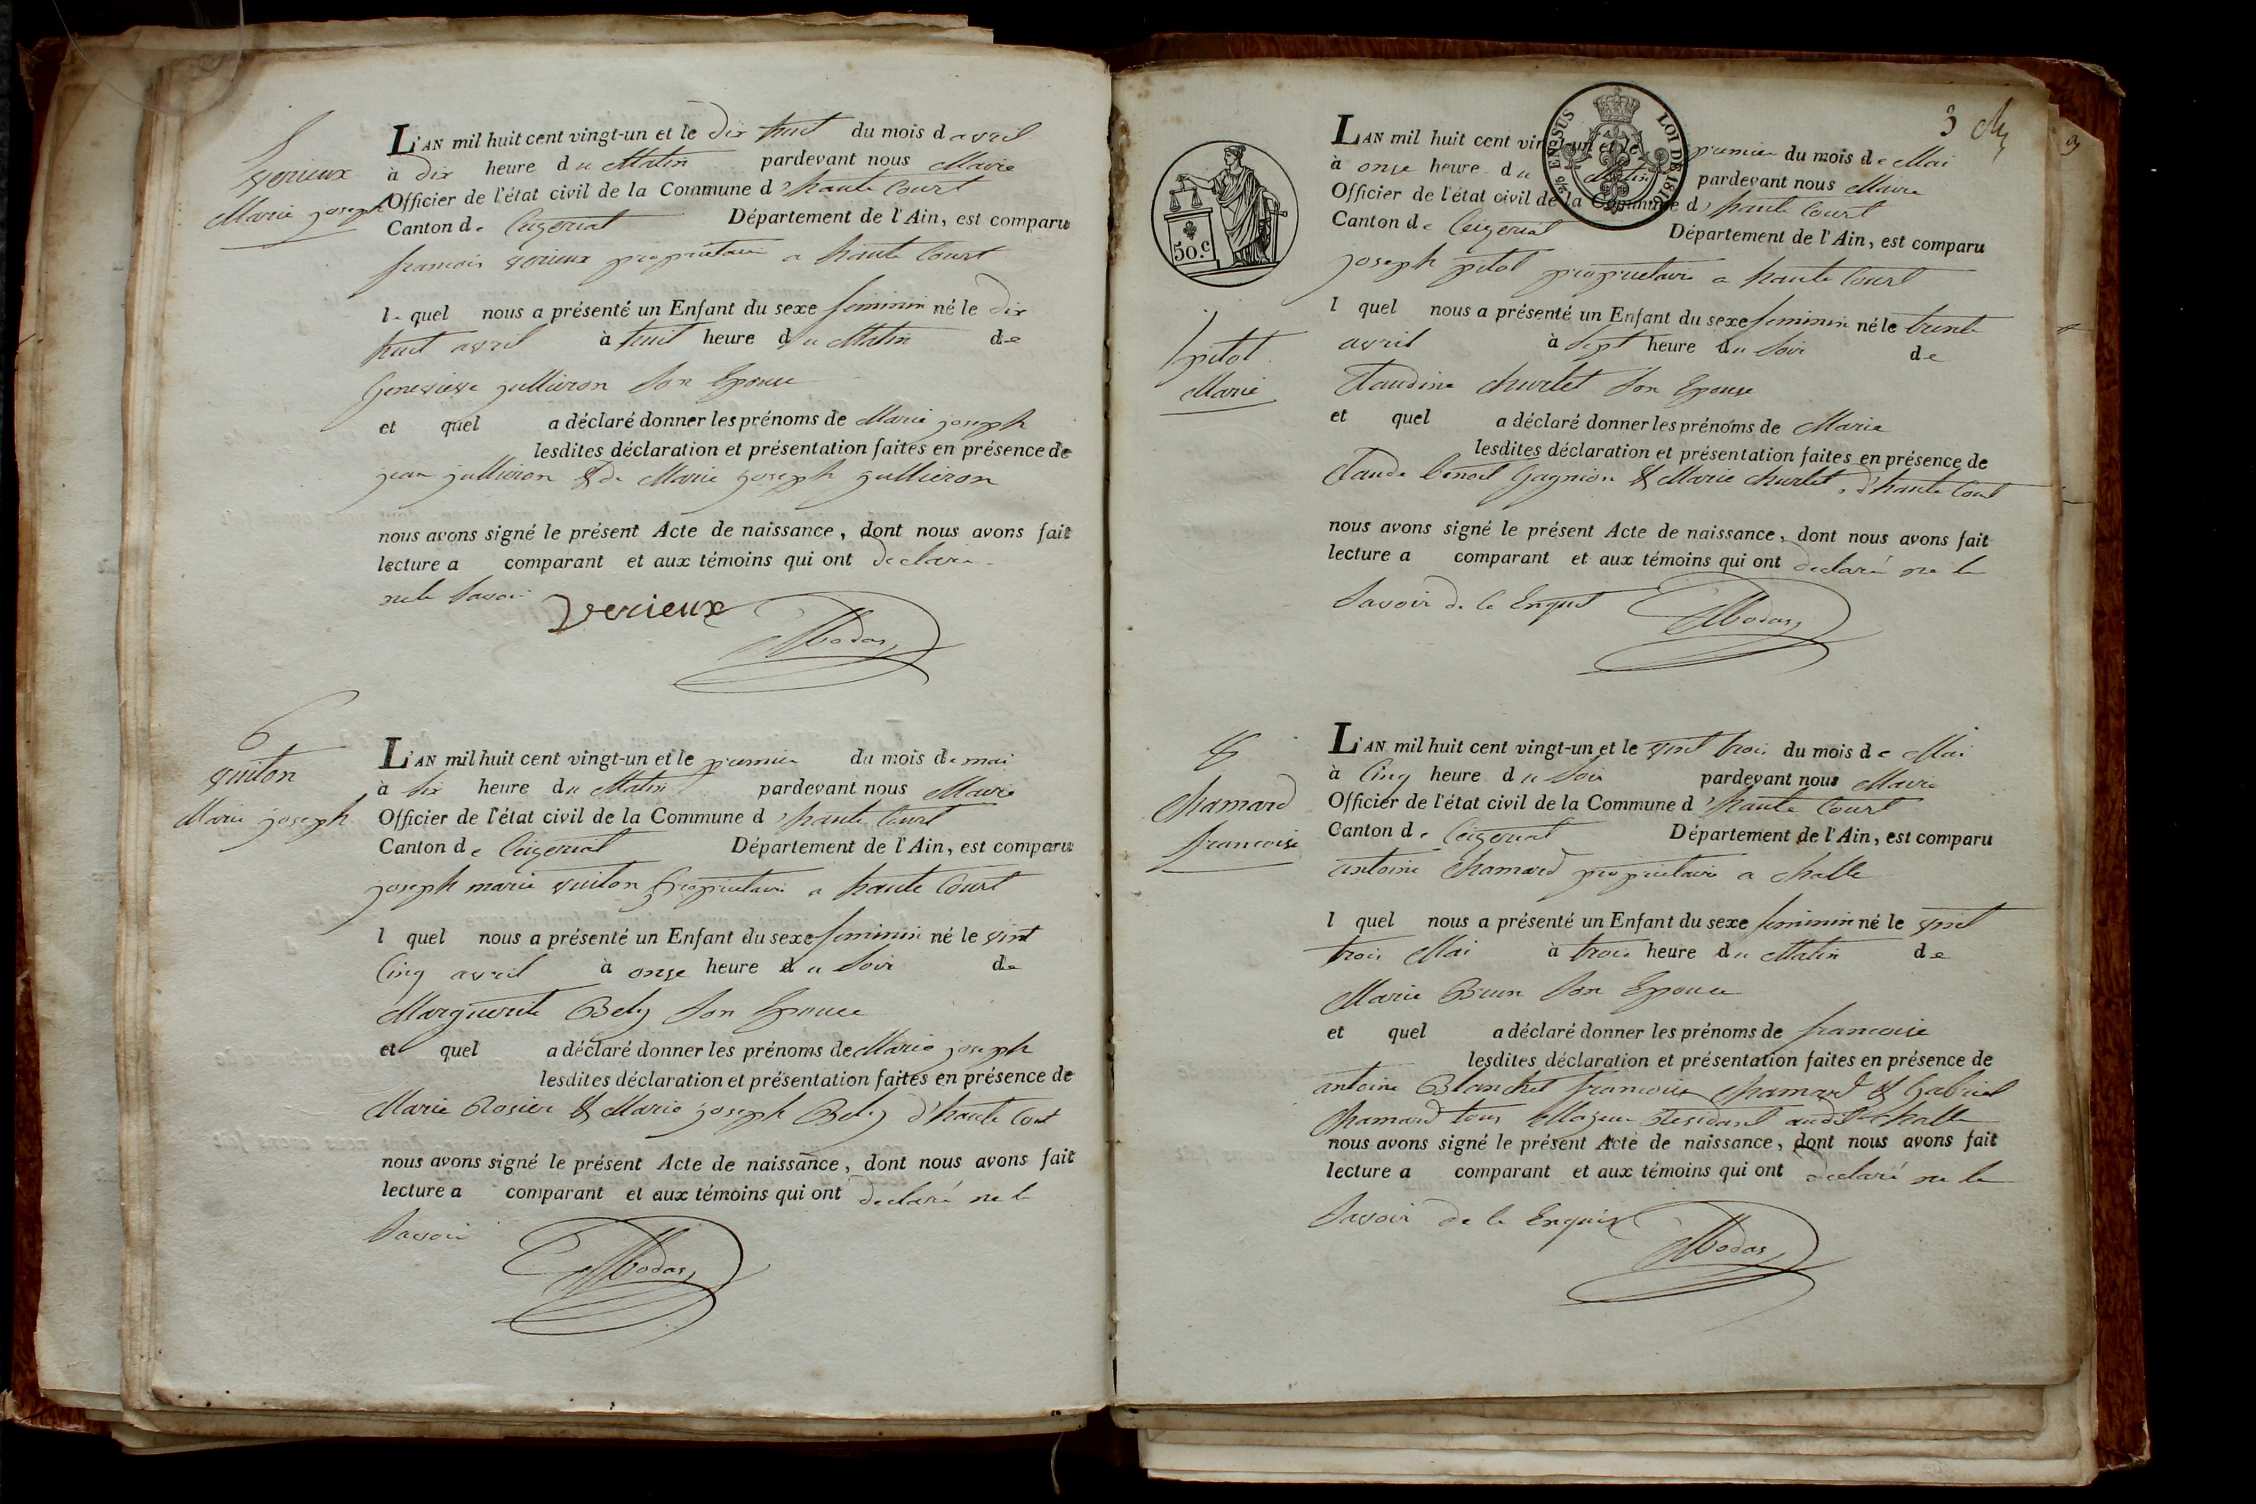 5
verieux
Marie joseph
L'AN mil huit cent vingt-un et le dix huit du mois d avril
à dix heure du Matin pardevant nous Maire
Officier de l'état civil de la Commune d'haute Court
Canton de Ceizeriat Département de l'Ain, est comparu
francois verieux proprietaire a haute Court
le quel nous a présenté un Enfant du sexe feminin né le dix
huit avril à huit heure du Matin de
Genevieve jullieron Son Epouse
et quel a déclaré donner les prénoms de Marie joseph
lesdites déclaration et présentation faites en présence de
jean jullieron & de Marie joseph jullieron
nous avons signé le présent Acte de naissance, dont nous avons fait
lecture a comparant et aux témoins qui ont declaré
ne le Savoir
verieux
Mbodas
6
vuiton
Marie joseph
L'AN mil huit cent vingt-un et le premier du mois de mai
à dix heure du Matin pardevant nous Maire
Officier de l'état civil de la Commune d'haute Court
Canton de Ceizeriat Département de l'Ain, est comparu
joseph marie vuiton proprietaire a haute Court
l quel nous a présenté un Enfant du sexe feminin né le vint
Cinq avril à onze heure du Soir de
Marguerite Bely Son Epouse
et quel a déclaré donner les prénoms de Marie joseph
lesdites déclaration et présentation faites en présence de
Marie Rosier & Marie joseph Bely d'haute Court
nous avons signé le présent Acte de naissance, dont nous avons fait
lecture a comparant et aux témoins qui ont declaré ne le
Savoir
Mbodas
3
50.c
LOI DE 1816
7
pitol
Marie
L'AN mil huit cent vingt-un et le premier du mois de Mai
à onze heure du Matin pardevant nous Maire
Officier de l'état civil de la Commune d'haute Court
Canton de Ceizeriat Département de l'Ain, est comparu
joseph pitol proprietaire a haute Court
l quel nous a présenté un Enfant du sexe feminin né le trente
avril à Sept heure du Soir de
Claudine Churlet Son Epouse
et quel a déclaré donner les prénoms de Marie
lesdites déclaration et présentation faites en présence de
Claude benoit Gagnion & Marie churlet d'haute Court
nous avons signé le présent Acte de naissance, dont nous avons fait
lecture a comparant et aux témoins qui ont declaré ne le
Savoir de ce Enquis
Mbodas
8
Chamard
francoise
L'AN mil huit cent vingt-un et le vint trois du mois de Mai
à Cinq heure du Soir pardevant nous Maire
Officier de l'état civil de la Commune d'haute Court
Canton de Ceizeriat Département de l'Ain, est comparu
antoine Chamard proprietaire a challe
l quel nous a présenté un Enfant du sexe feminin né le vint
trois Mai à trois heure du Matin de
Marie Brun Son Epouse
et quel a déclaré donner les prénoms de francoise
lesdites déclaration et présentation faites en présence de
antoine Blanchet francois chamard & Gabriel
Chamard tous Majeur Residant audit challe
nous avons signé le présent Acte de naissance, dont nous avons fait
lecture a comparant et aux témoins qui ont declaré ne le
Savoir de ce Enquis
Mbodas